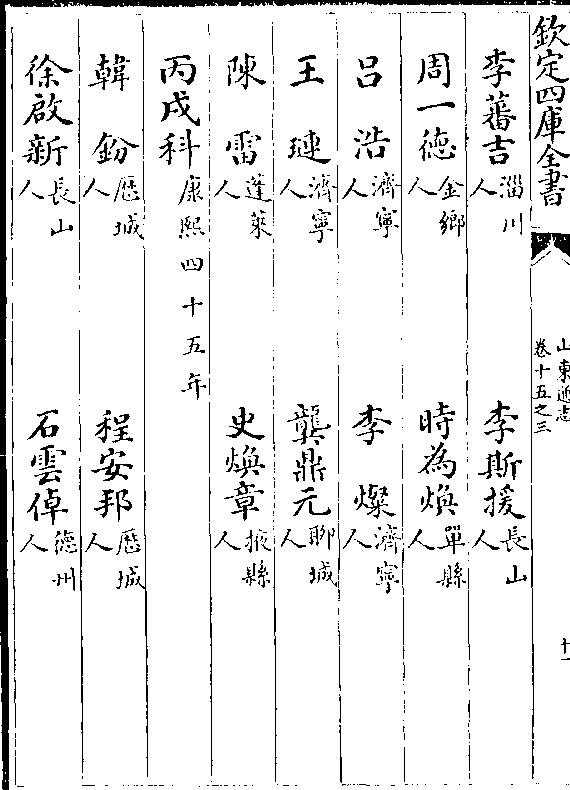 欽定四庫全書
山東通志
卷十五之三
十一
李蕃吉淄川人
李斯援長山人
周一德金鄉人
時為煥單縣人
呂浩濟寧人
李燦濟寧人
王璉濟寧人
龔鼎元聊城人
陳雷蓬萊人
史煥章掖縣人
丙戌科康熙四十五年
韓鈖歴城人
程安邦歴城人
徐啟新長山人
石雲倬德州人